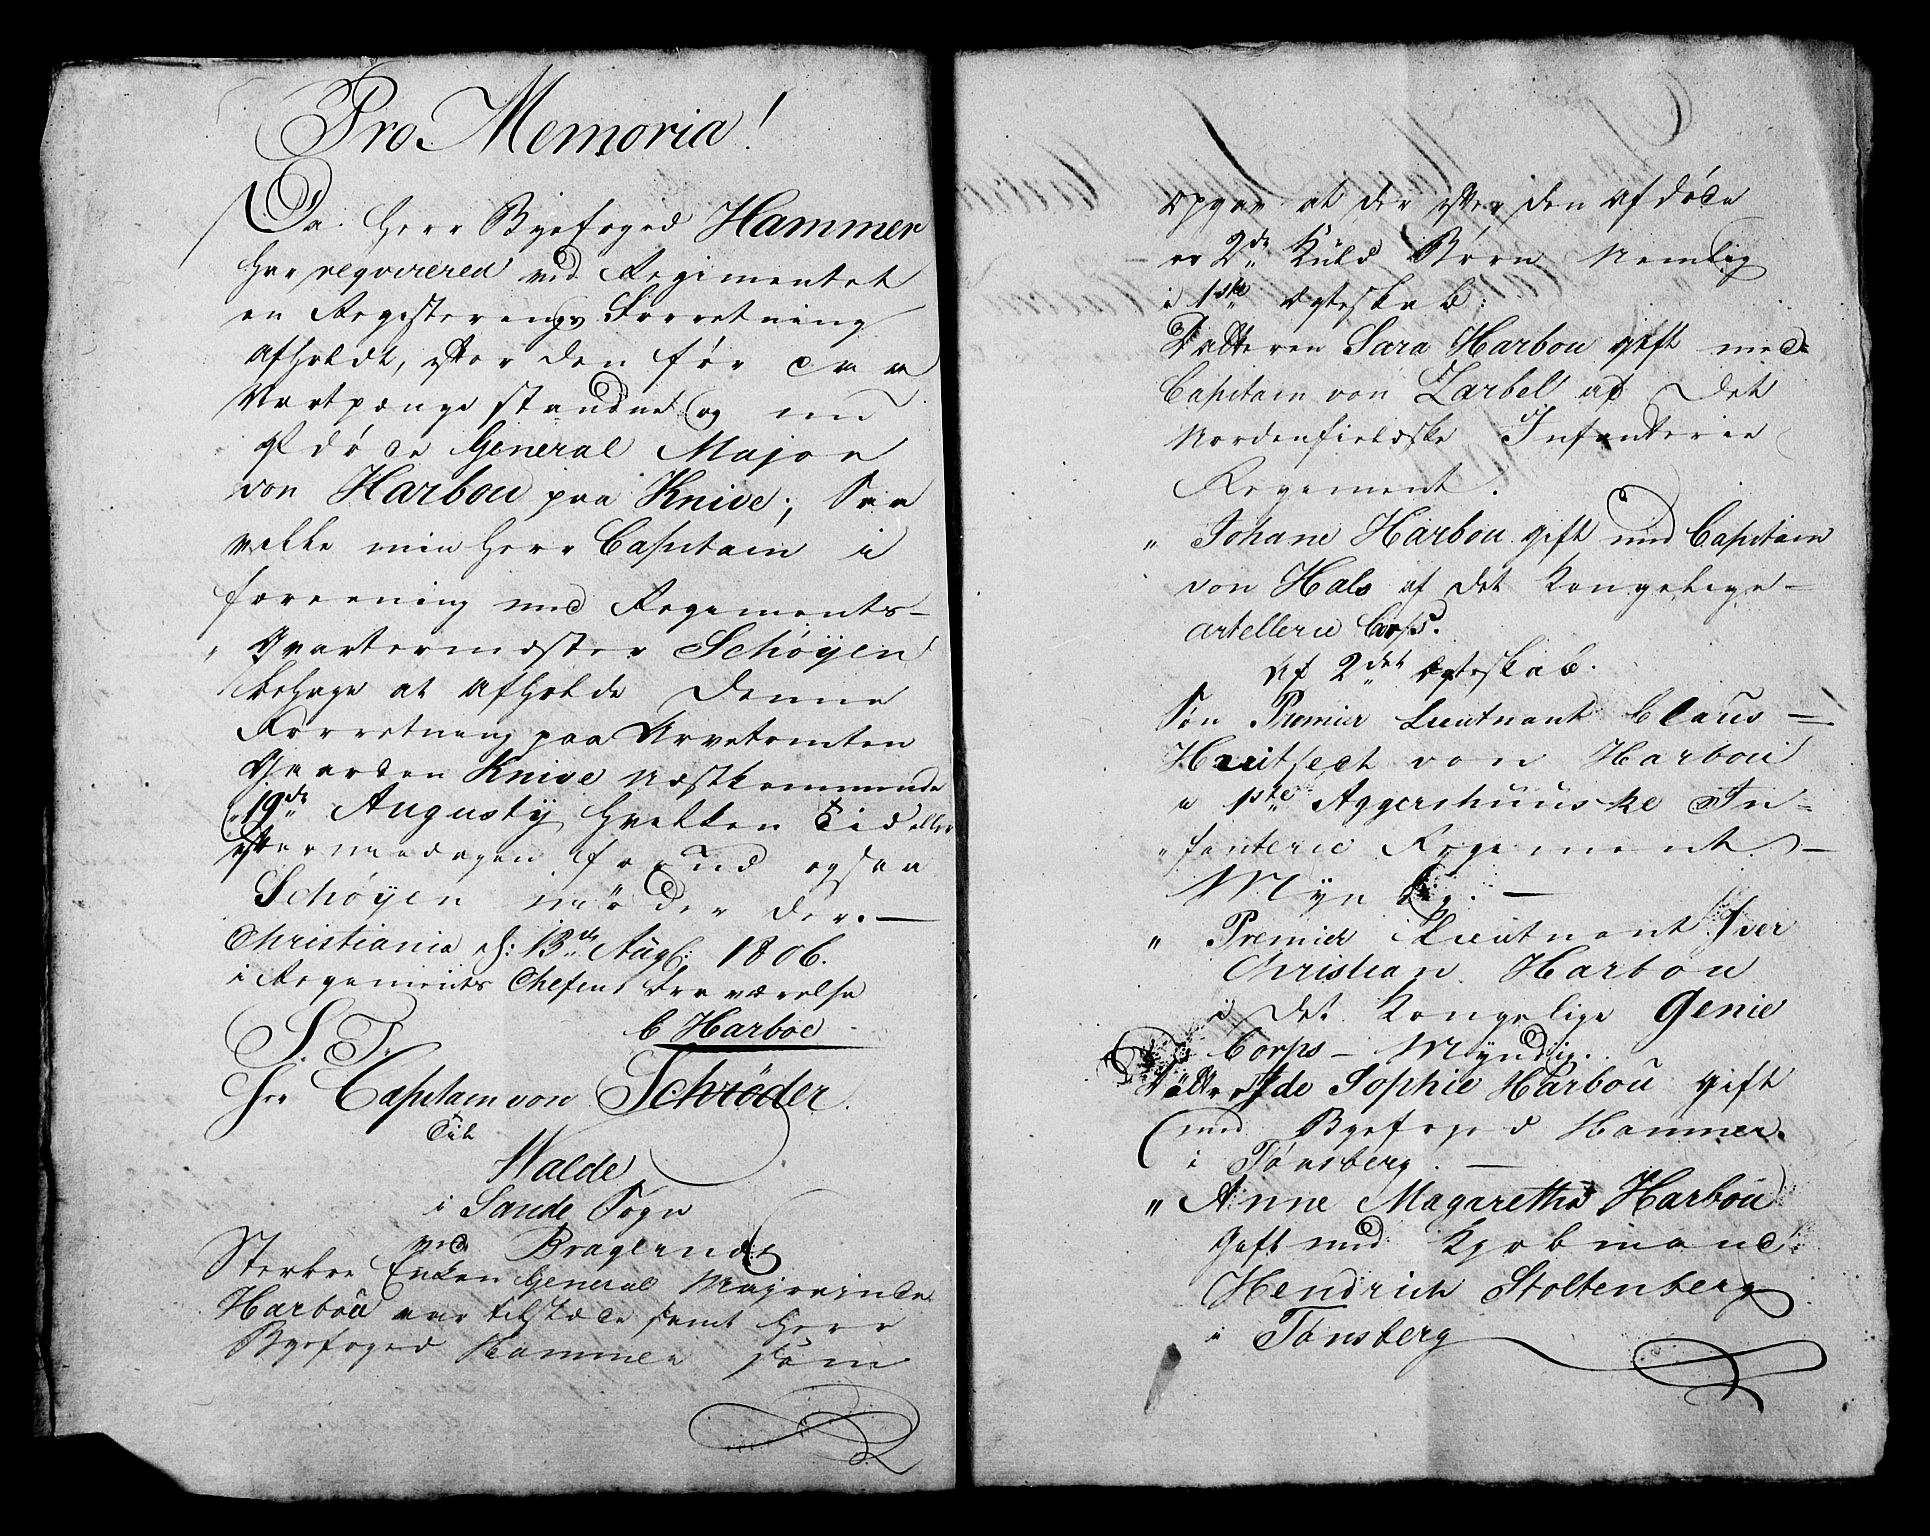 Pro Memoria!
Da Herr Byefoged Hammer
har reqvirered ved Regimentet
en Registerings Forretning
afholdt, efter den før paa
Vartpænge standne og nu
afdøde General Major
von Harbou paa Knive; Saa
vilde min Herr Capitain i
foreening med Regiments-
Qvartermester Schøyen
behage at afholde denne
Forretning paa
Gaarden Knive næstkommende
19de Augusty, hvilken Tid eller
eftermiddagen forud ogsaa
Schøyen møder der. —
Christiania d: 13de Augs: 1806.
i Regiments Chefens fraværelse
C Harboe
S. T.
Hrr Capitain von Schrøder.
til
Walde
i Sande Sogn
ved Bragernes
Sterboe Enken General Majorinde
Harbou var tilstæde samt Herr
Byefoged Hammer som
opgav at der efter den afdøde
er 2de Kuld Børn Nemlig
i 1ste Ægteskab:
Datteren Sara Harbou gift med
Capitain von Zarbel af det
Nordenfieldske Infanterie
Regement.
" Johane Harbou gift med Capitain
von Hals af det Kongelige —
artellerie Corps.
Af 2det Ægteskab.
Søn Premier Lieutnant Claus —
Huitfect von Harbou
i 1ste Aggershuuske In-
" fanterie Regement —
Myndig. —
" Premier Lieutnant Iver
Christian Harbou
i det Kongelige Genie
Corps — Myndig.
Datter Ide Sophie Harbou gift
med Byefoged Hammer
i Tønsberg. —
" Anne Magarethe Harbou
Gift med Kjøbmand
Hendrich Stoltenberg
i Tønsberg